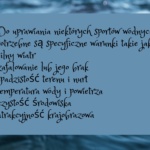 Do uprawiania niektórych sportów wodnych
potrzebne są specyficzne warunki takie jak
silny wiatr
zafalowanie lub jego brak
spadzistość terenu i nurt
temperatura wody i powietrza
czystość środowiska
atrakcyjność krajobrazowa